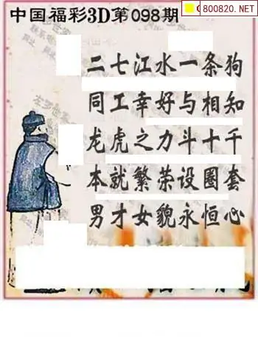 C800820.NET
中国福彩3D第098期
二七江水一条狗
同工幸好与相知
龙虎之力斗十千
本就繁荣设圈套
男才女貌永恒心